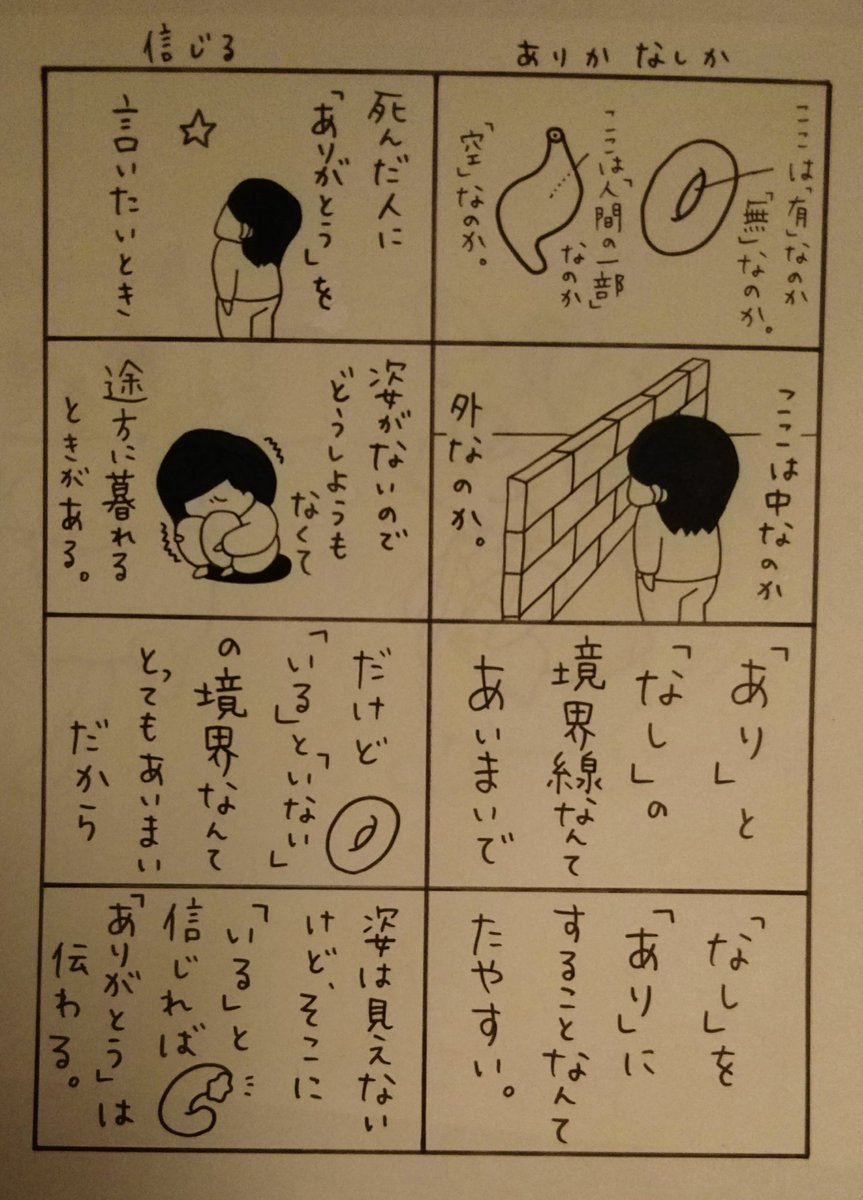 ありか なしか
ここは「有」なのか
「無」なのか。
ここは「人間の一部」
なのか
「空」なのか。
ここは中なのか
外なのか。
「あり」と
「なし」の
境界線なんて
あいまいで
「なし」を
「あり」に
することなんて
たやすい。
信じる
死んだ人に
「ありがとう」を
言いたいとき
姿がないので
どうしようも
なくて
途方に暮れる
ときがある。
だけど
「いる」と「いない」
の境界なんて
とってもあいまい
だから
姿は見えない
けど、そこに
「いる」と
信じれば
「ありがとう」は
伝わる。